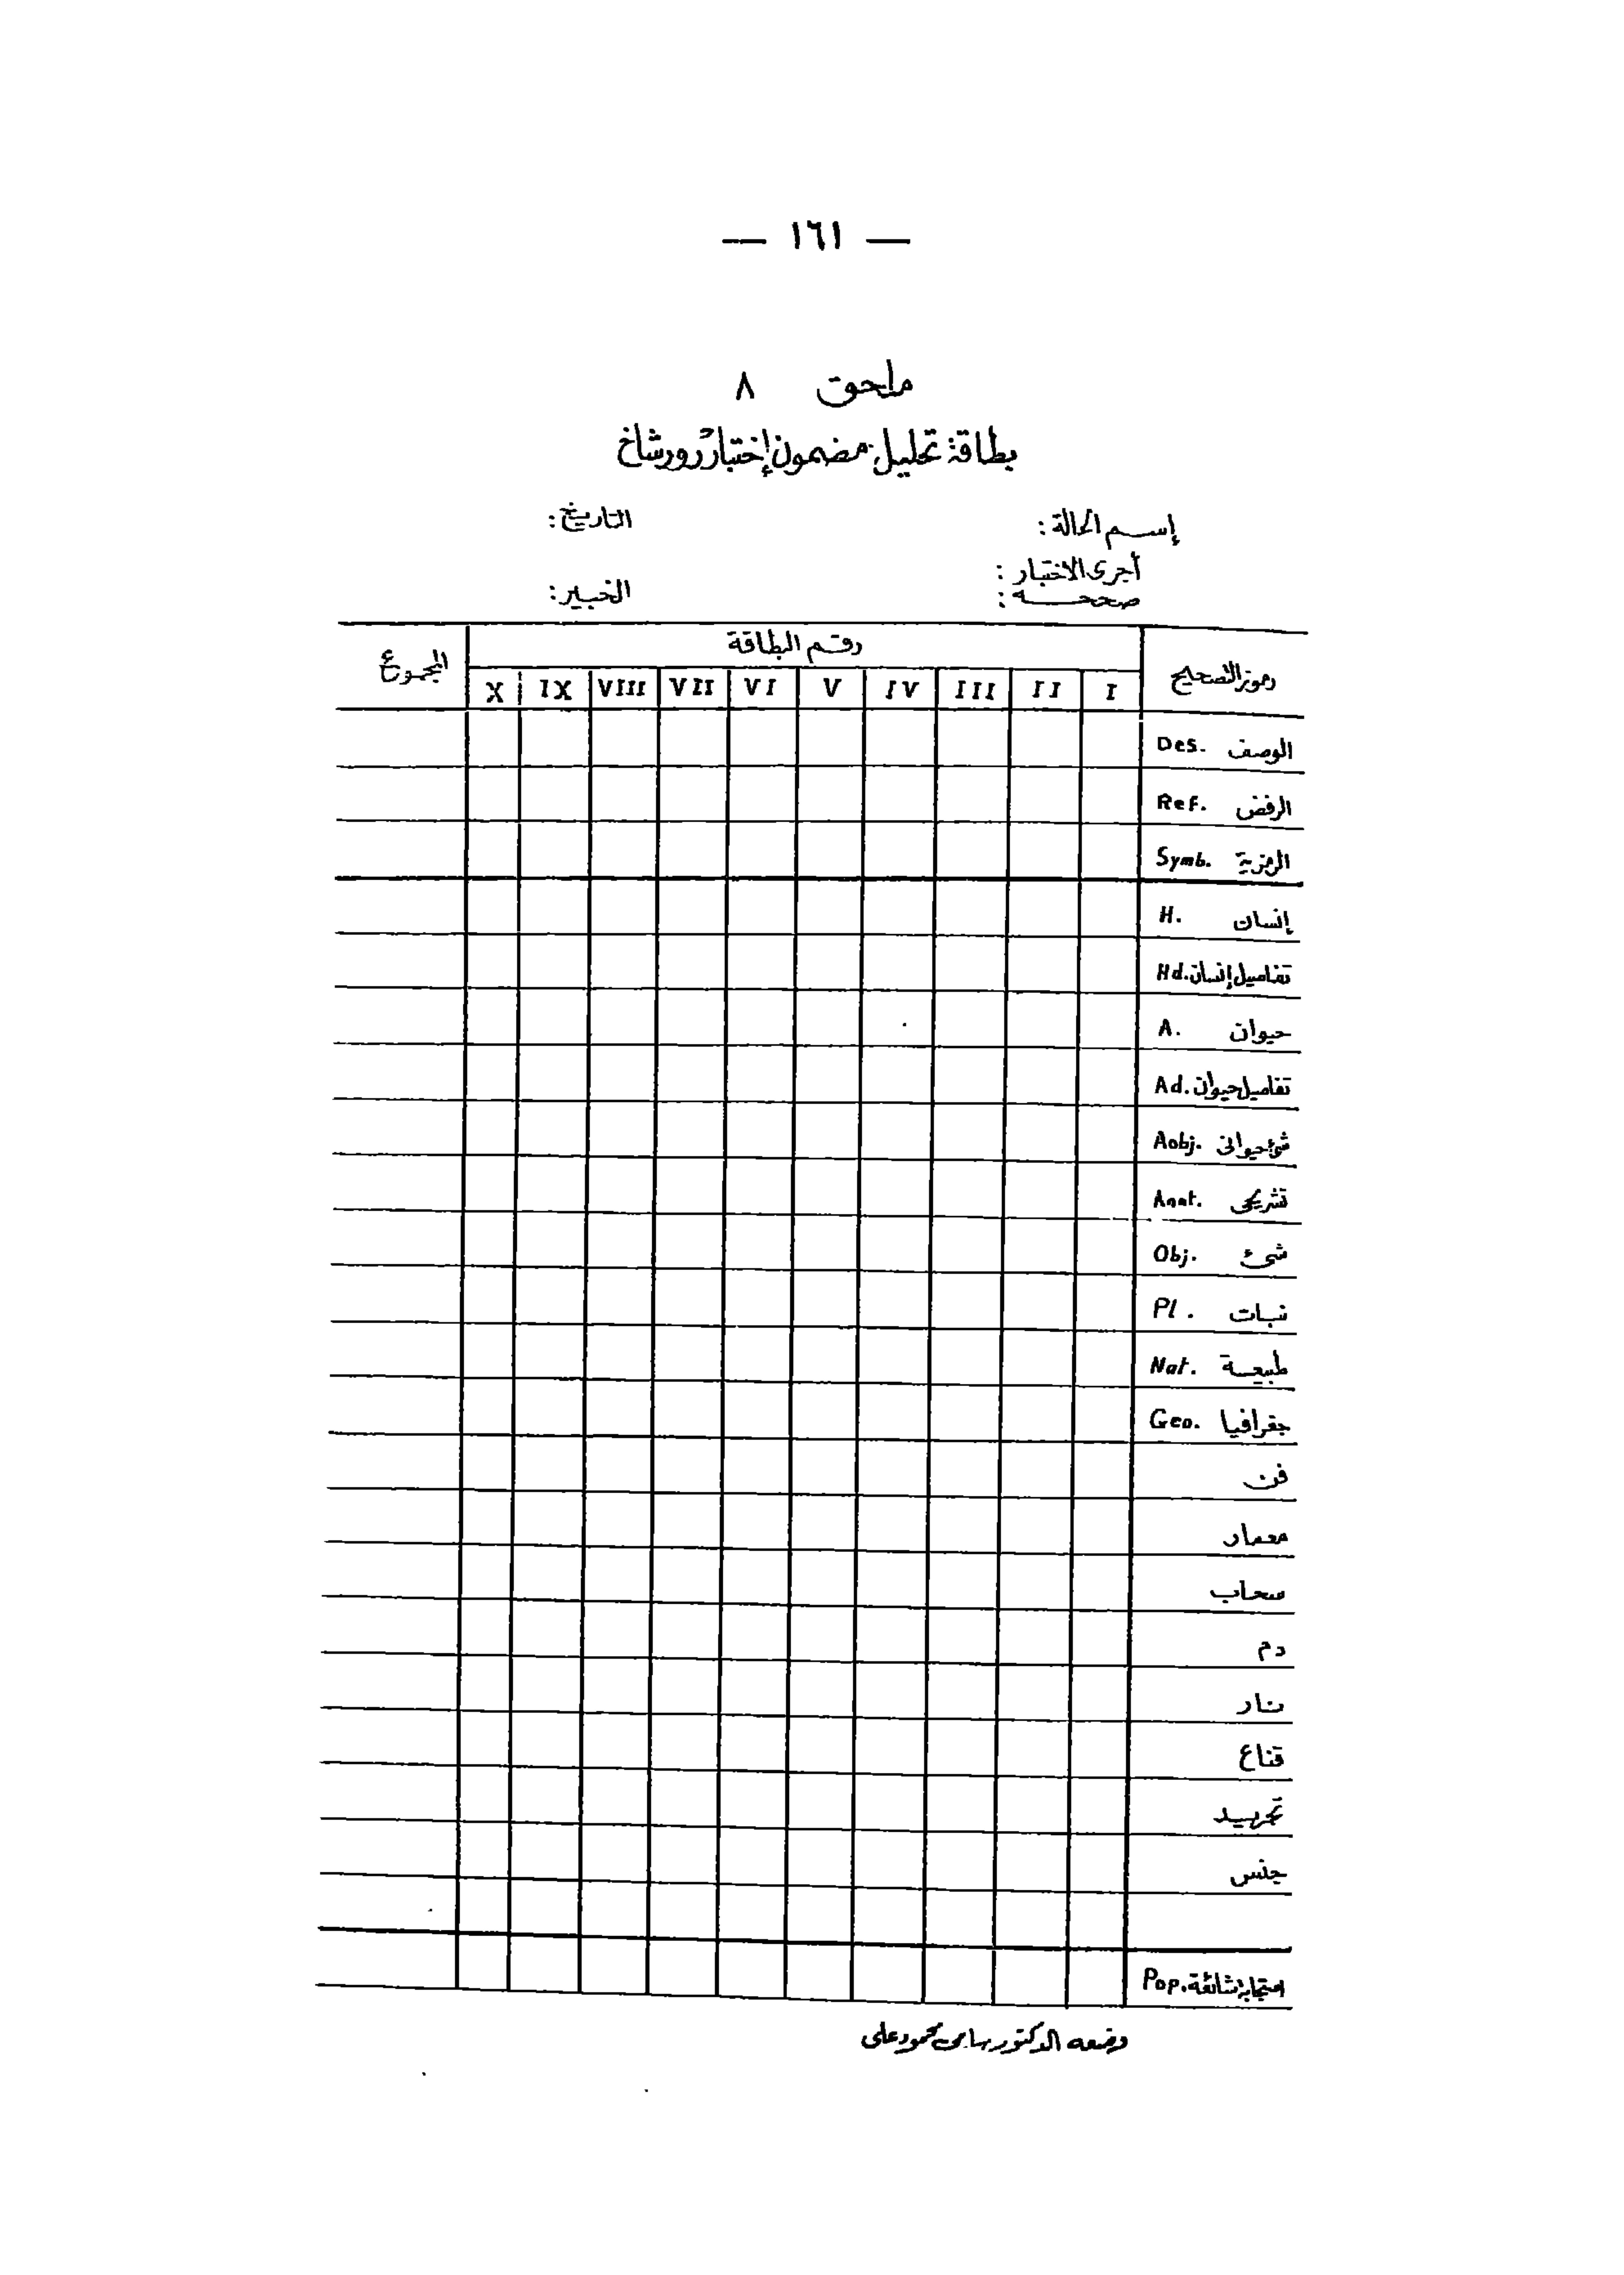 — ١٦١ —
ملحق ٨
بطاقة تحليل مضمون إختبار رورشاخ
إسم الحالة: التاريخ:
أجرى الاختبار:
صححه: الخبير:
رموز التصحيح رقم البطاقة المجموع
I II III IV V VI VII VIII IX X
الوصف Des.
الرفض Ref.
الرمزية Symb.
إنسان H.
تفاصيل إنسان Hd.
حيوان A.
تفاصيل حيوان Ad.
شئ حيوانى Aobj.
تشريحى Anat.
شئ Obj.
نبات Pl.
طبيعة Nat.
جغرافيا Geo.
فن
معمار
سحاب
دم
نار
قناع
تجريد
جنس
استجابة شائعة Pop.
وضعه الدكتور سامى محمود على